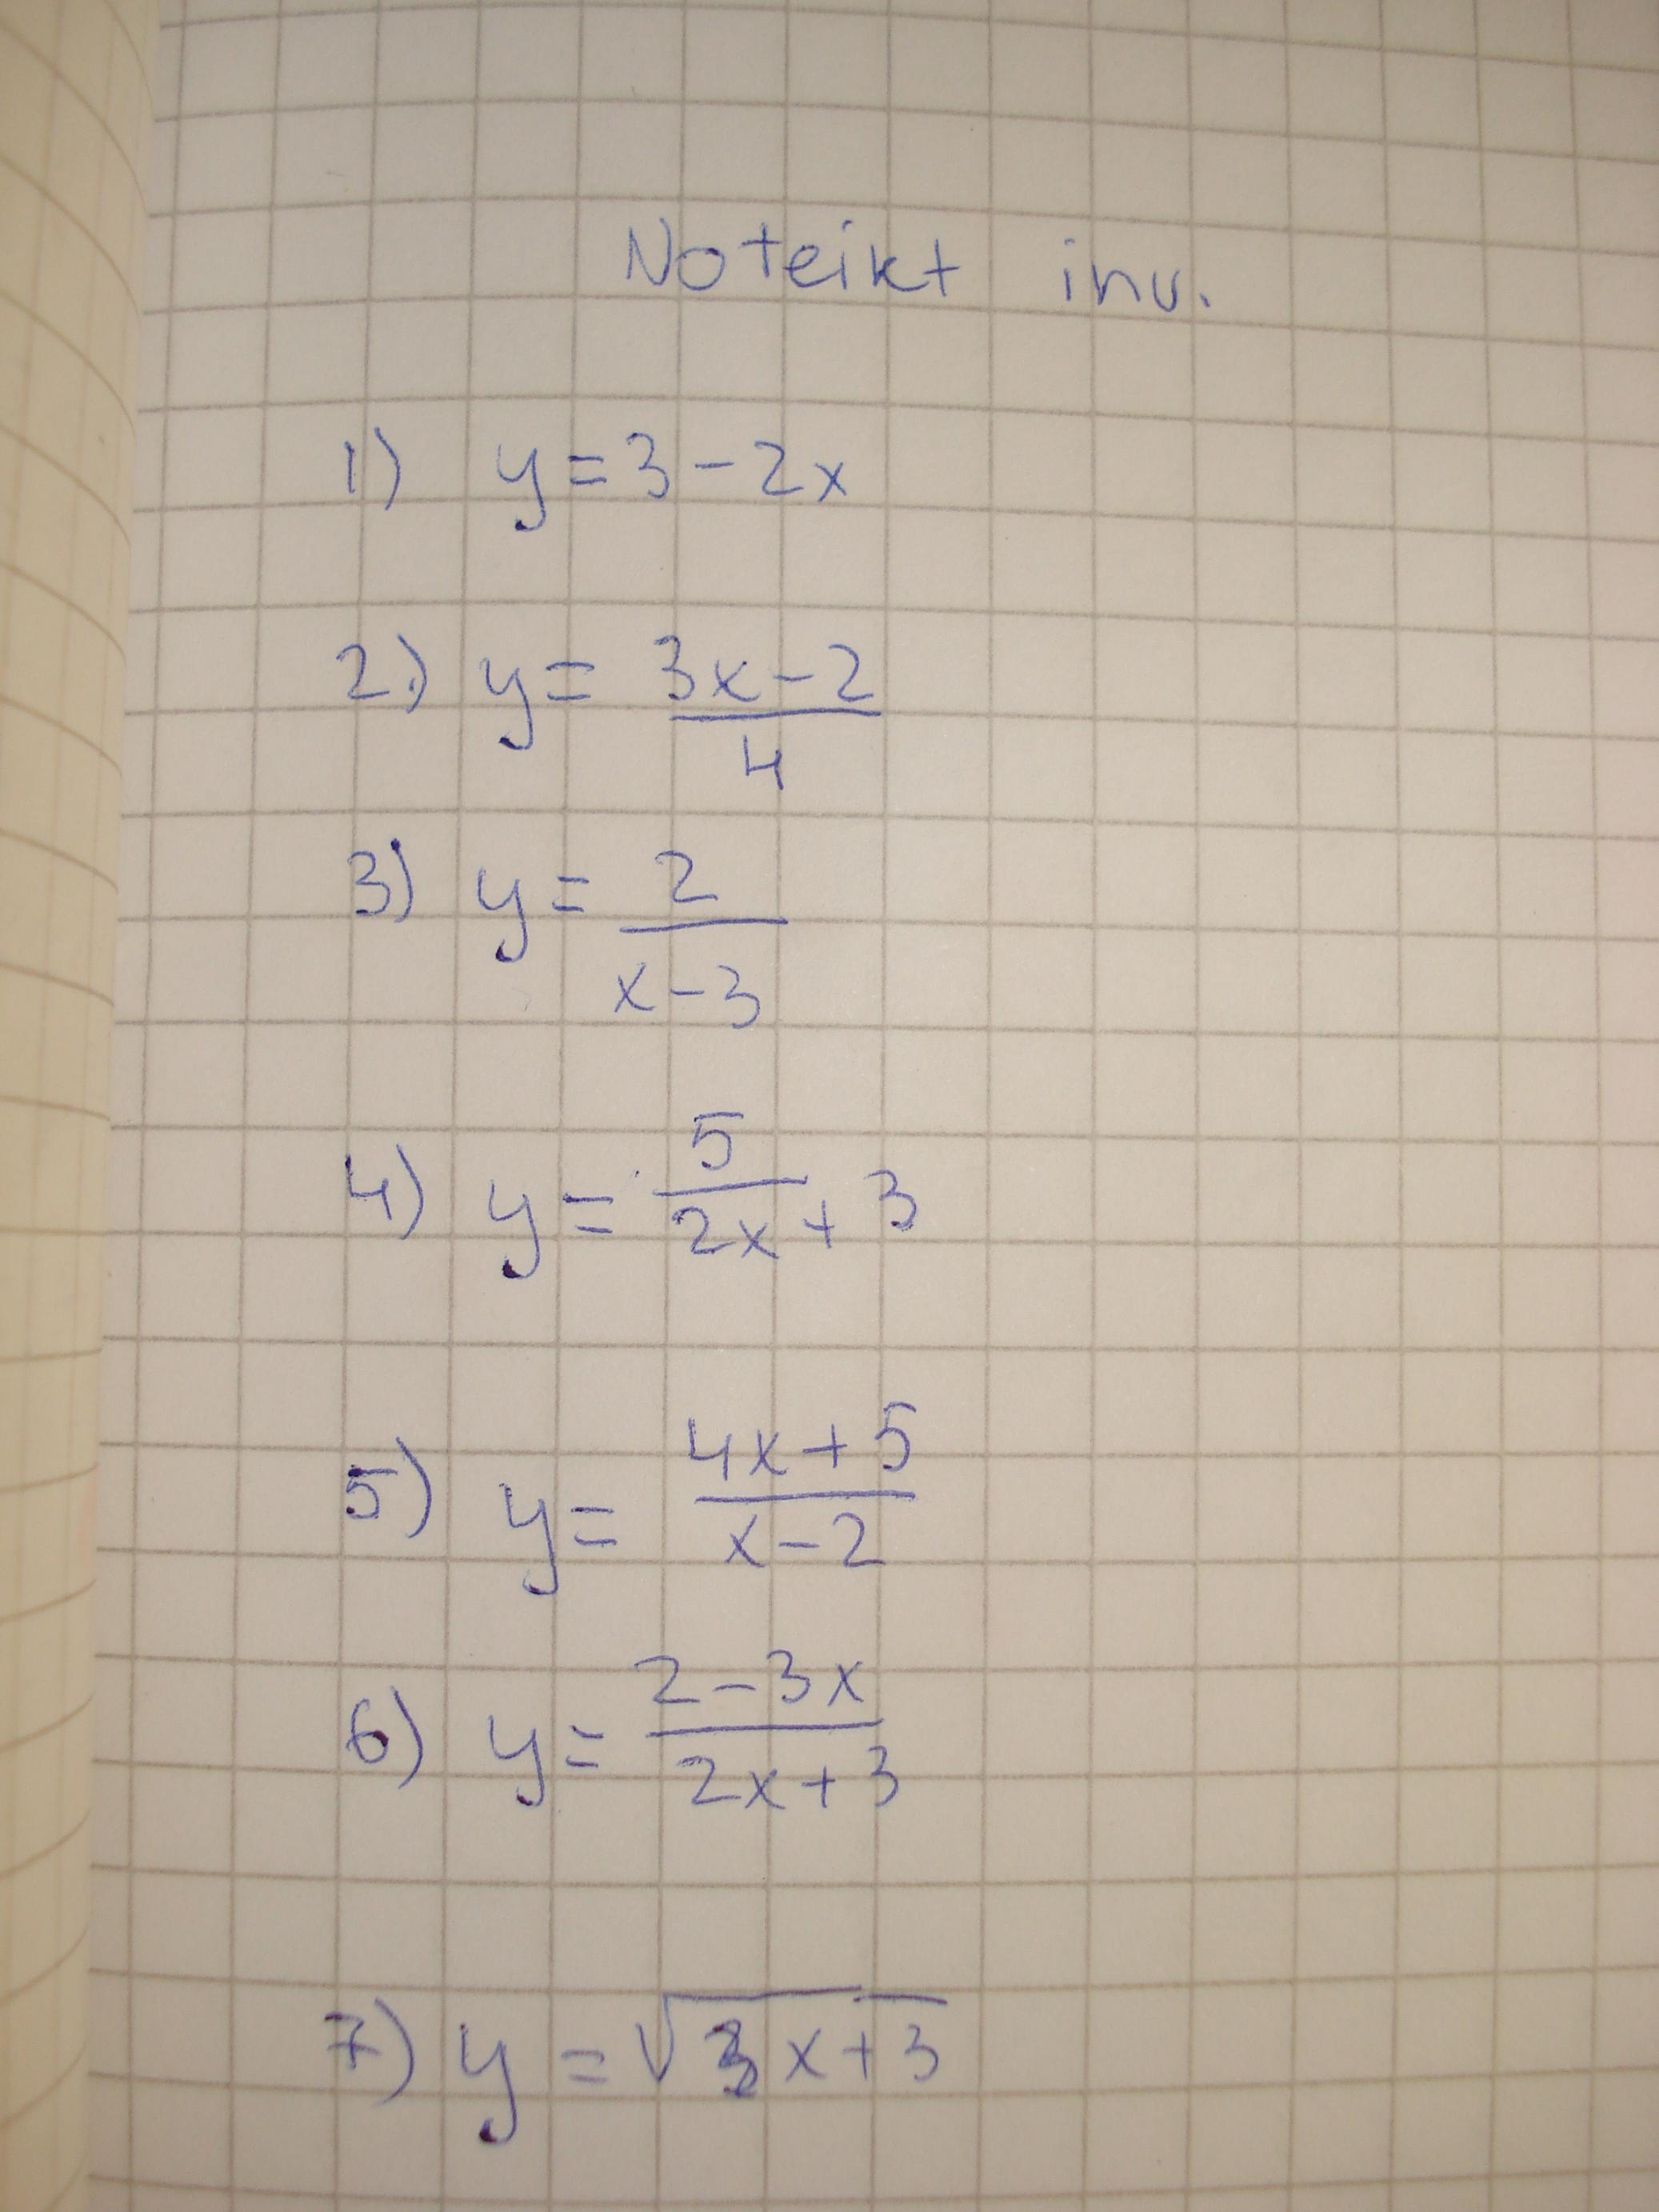 Noteikt inv.
1) y = 3 - 2x
2.) y = 3x - 2
4
3) y = 2
x - 3
4) y = 5
2x + 3
5) y = 4x + 5
x - 2
6) y = 2 - 3x
2x + 3
7) y = √3x + 3